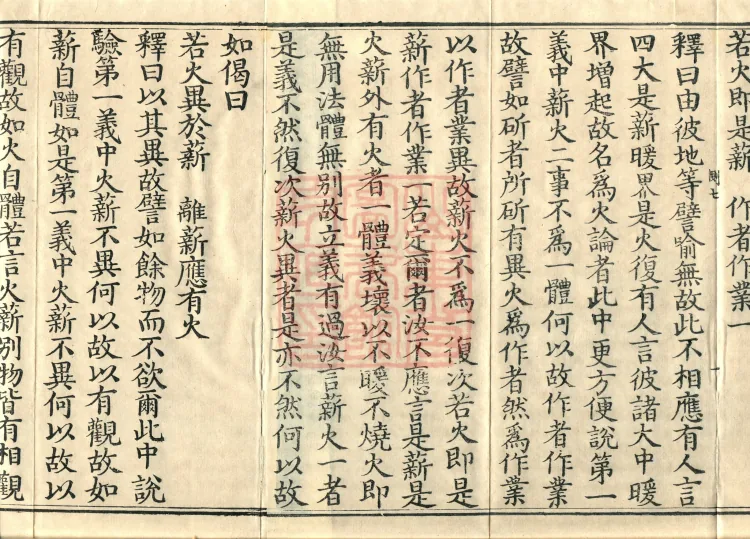 若火即是薪 作者作業一
釋曰由彼地等譬喻無故此不相應有人言
四大是薪暖界是火復有人言彼諸大中暖
界增起故名為火論者此中更方便說第一
義中薪火二事不為一體何以故作者作業
故譬如斫者所斫有異火為作者然為作業
以作者業異故薪火不為一復次若火即是
薪作者作業一若定爾者汝不應言是薪是
火薪外有火者一體義壞以不暖不燒火即
無用法體無別故立義有過汝言薪火一者
是義不然復次薪火異者是亦不然何以故
如偈曰
若火異於薪 離薪應有火
釋曰以其異故譬如餘物而不欲爾此中說
驗第一義中火薪不異何以故以有觀故如
薪自體如是第一義中火薪不異何以故以
有觀故如火自體若言火薪別物皆有相觀